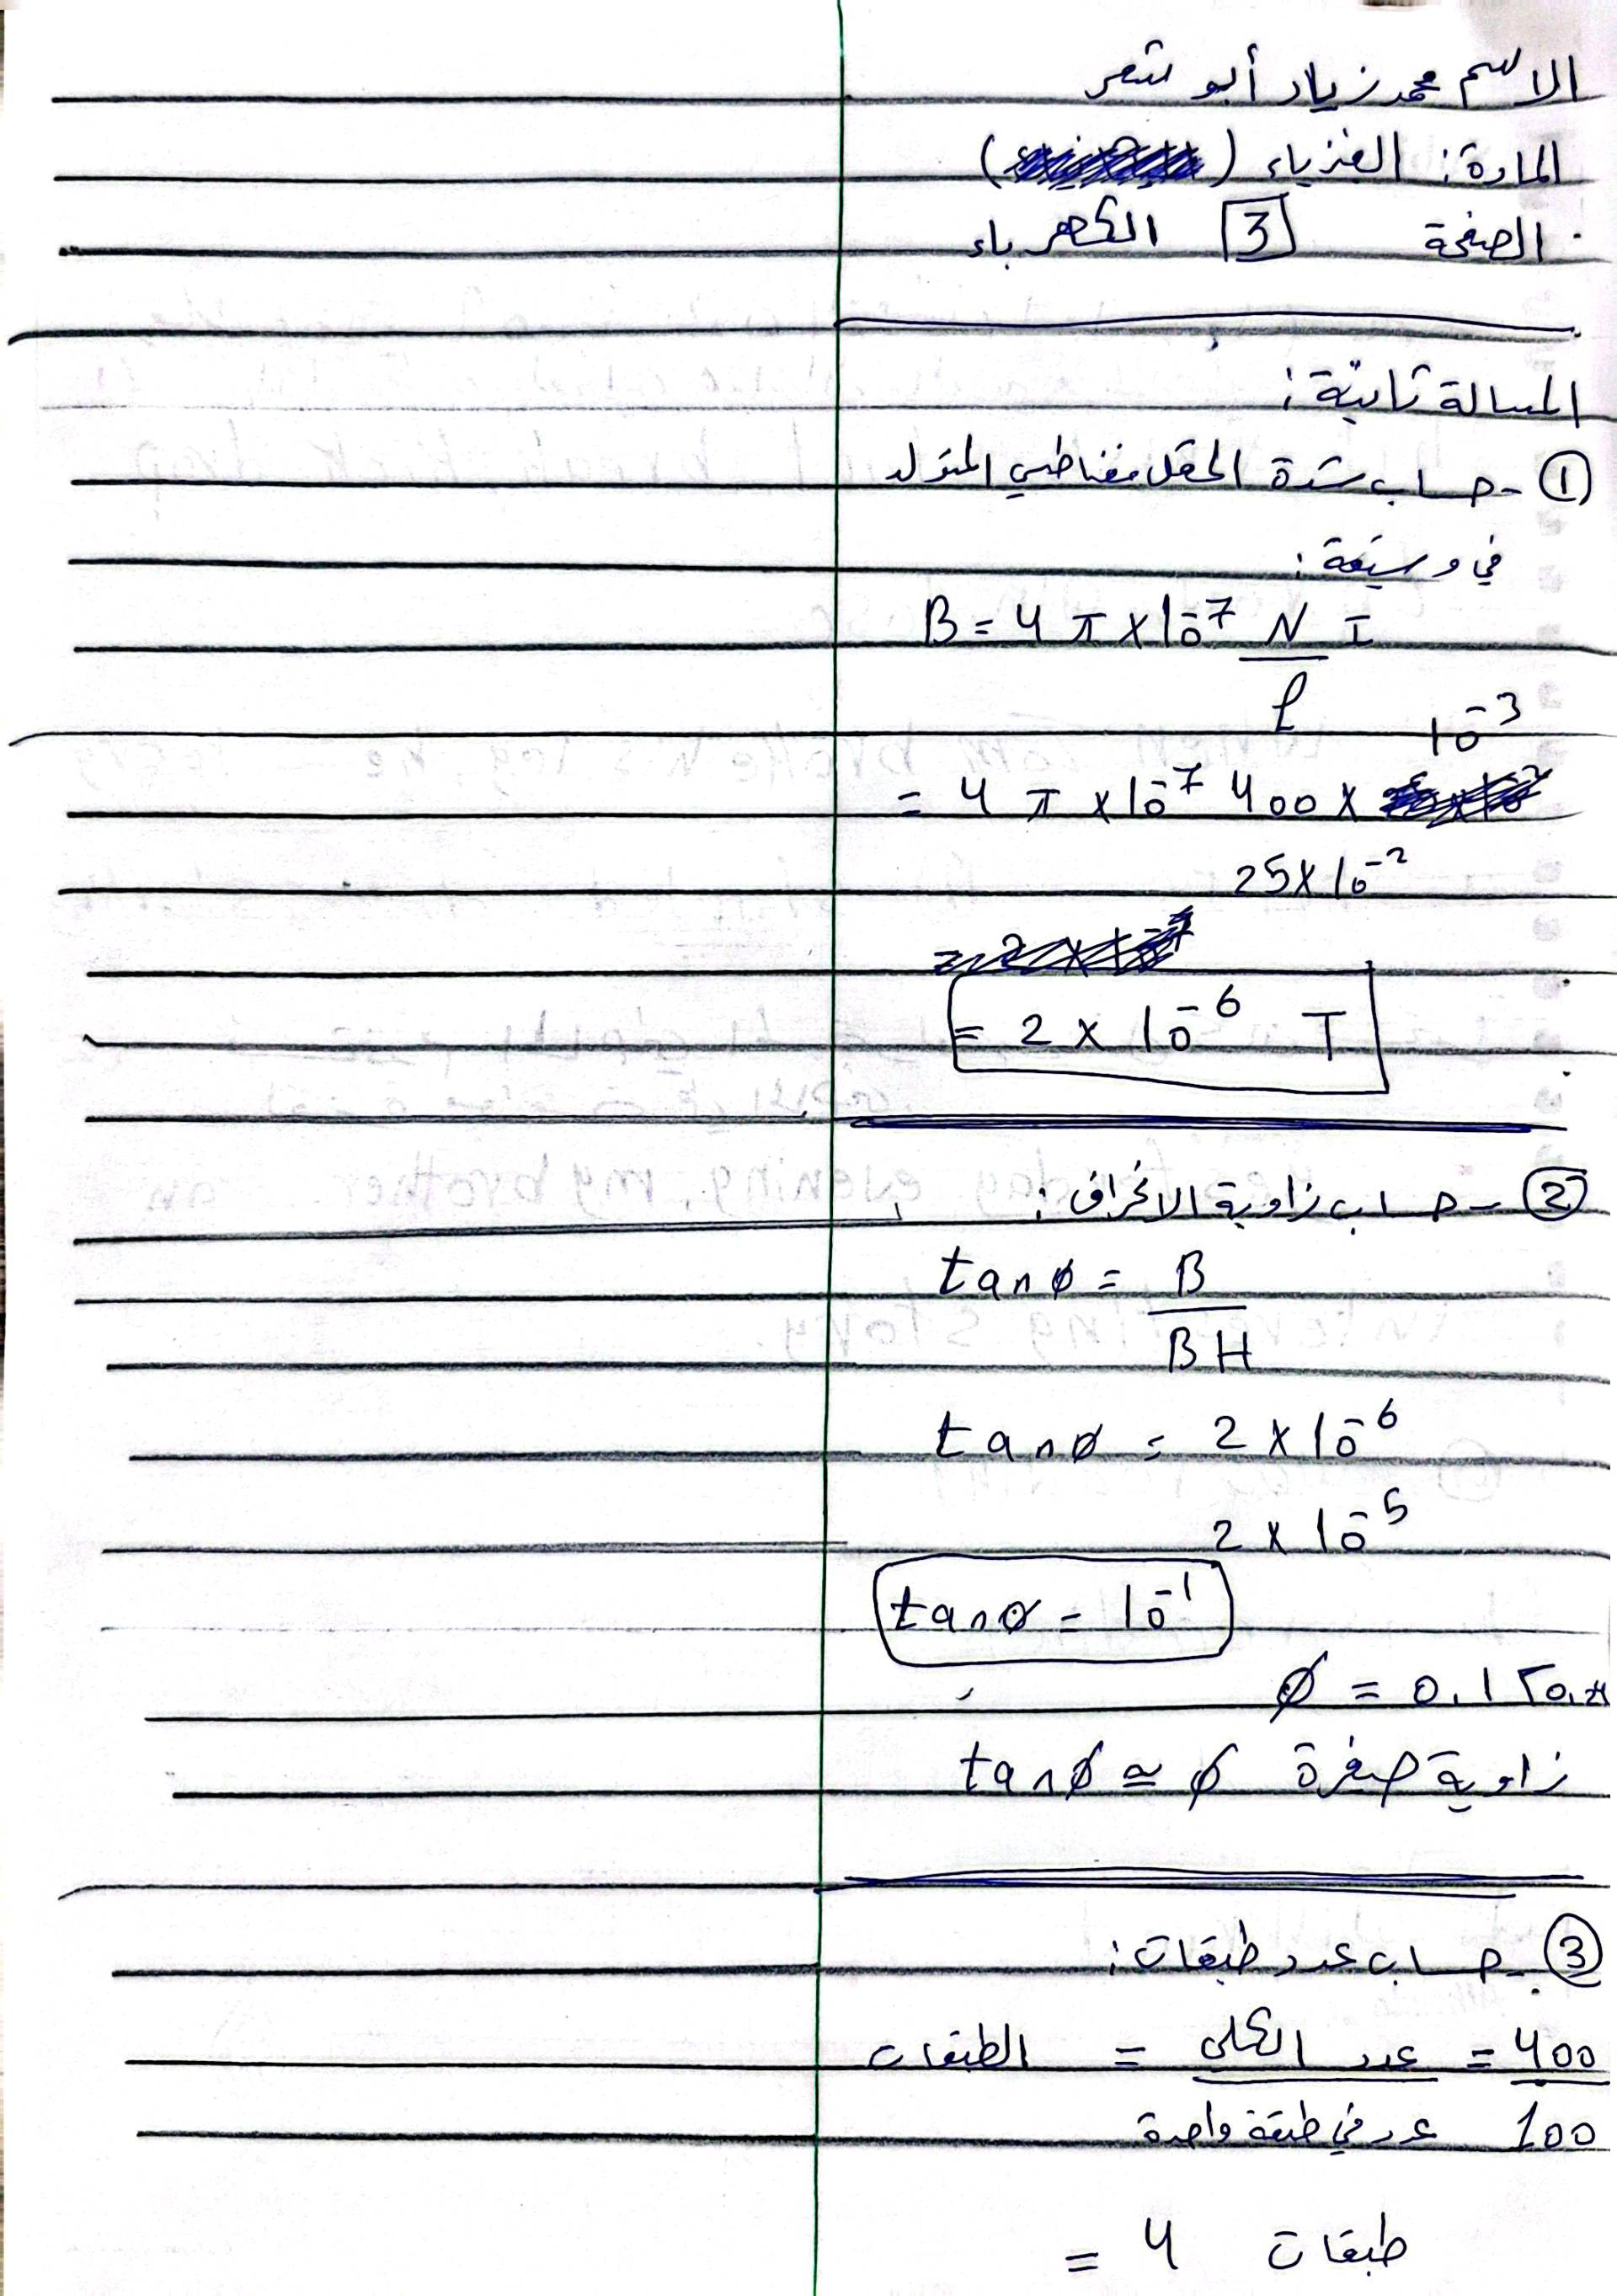 الاسم محمد زياد أبو شعر
المادة: الفيزياء ( )
الصفحة 3 الكهرباء
المسالة ثانية:
① - حساب شدة الحقل مغناطسي المتولد
في وشيعة:
B = 4 π × 10⁻⁷ N I
ℓ
10⁻³
= 4 π × 10⁻⁷ 400 ×
25 × 10⁻²
= 2 × 10⁻⁶ T
② - حساب زاوية الانحراف:
tan ø = B
BH
tan ø = 2 × 10⁻⁶
2 × 10⁻⁵
tan ø = 10⁻¹
ø = 0.1 rad
زاوية صغرة tan ø ≃ ø
③ - حساب عدد طبقات:
الطبقات = عدد الكلي = 400
عدد في طبقة واحدة 100
= 4 طبقات